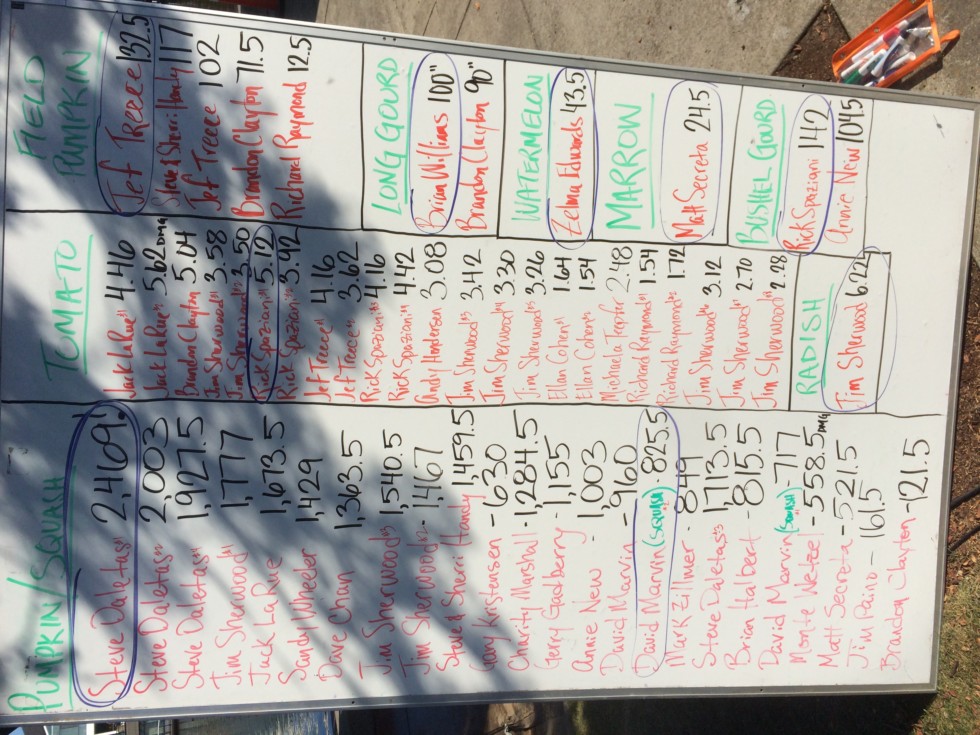 PUMPKIN/SQUASH
Steve Daletas #1 2,469!
Steve Daletas 2,003
Steve Daletas 1,927.5
Jim Sherwood #1 1,777
Jack LaRue 1,673.5
Sandy Wheeler 1,429
Dave Chan 1,363.5
Jim Sherwood 1,540.5
Jim Sherwood - 1,467
Steve & Sherri Handy 1,459.5
Gary Kristensen - 630
Charity Marshall - 1,284.5
Gerry Gadberry - 1,155
Annie New - 1,003
David Marvin - 960
David Marvin (SQUASH) 825.5
Mark Zillmer - 849
Steve Daletas #3 1,713.5
Brian Halbert - 815.5
David Marvin (SQUASH) - 717
Monte Wetzel - 558.5 DMG
Matt Secreta - 521.5
Jim Paino - 161.5
Brandon Clayton - 121.5
TOMATO
Jack LaRue 4.46
Jack LaRue 5.62 DMG
Brandon Clayton 5.04
Jim Sherwood 3.58
Jim Sherwood 3.50
Rick Spaziani 5.12
Rick Spaziani 3.92
Jef Treece 4.16
Jef Treece 3.62
Rick Spaziani 4.16
Rick Spaziani 4.42
Andy Henderson 3.08
Jim Sherwood 3.42
Jim Sherwood 3.30
Jim Sherwood 3.26
Ellan Cohen 1.64
Ellan Cohen 1.54
Michaela 2.48
Richard Raymond 1.54
Richard Raymond 1.72
Jim Sherwood 3.12
Jim Sherwood 2.70
Jim Sherwood 2.28
RADISH
Jim Sherwood 6.725
FIELD
PUMPKIN
Jef Treece 132.5
Steve & Sherri Handy 117
Jef Treece 102
Brandon Clayton 71.5
Richard Raymond 12.5
LONG GOURD
Brian Williams 100"
Brandon Clayton 90"
WATERMELON
Zelma Edwards 43.5
MARROW
Matt Secreta 24.5
BUSHEL GOURD
Rick Spaziani 142
Annie New 104.5